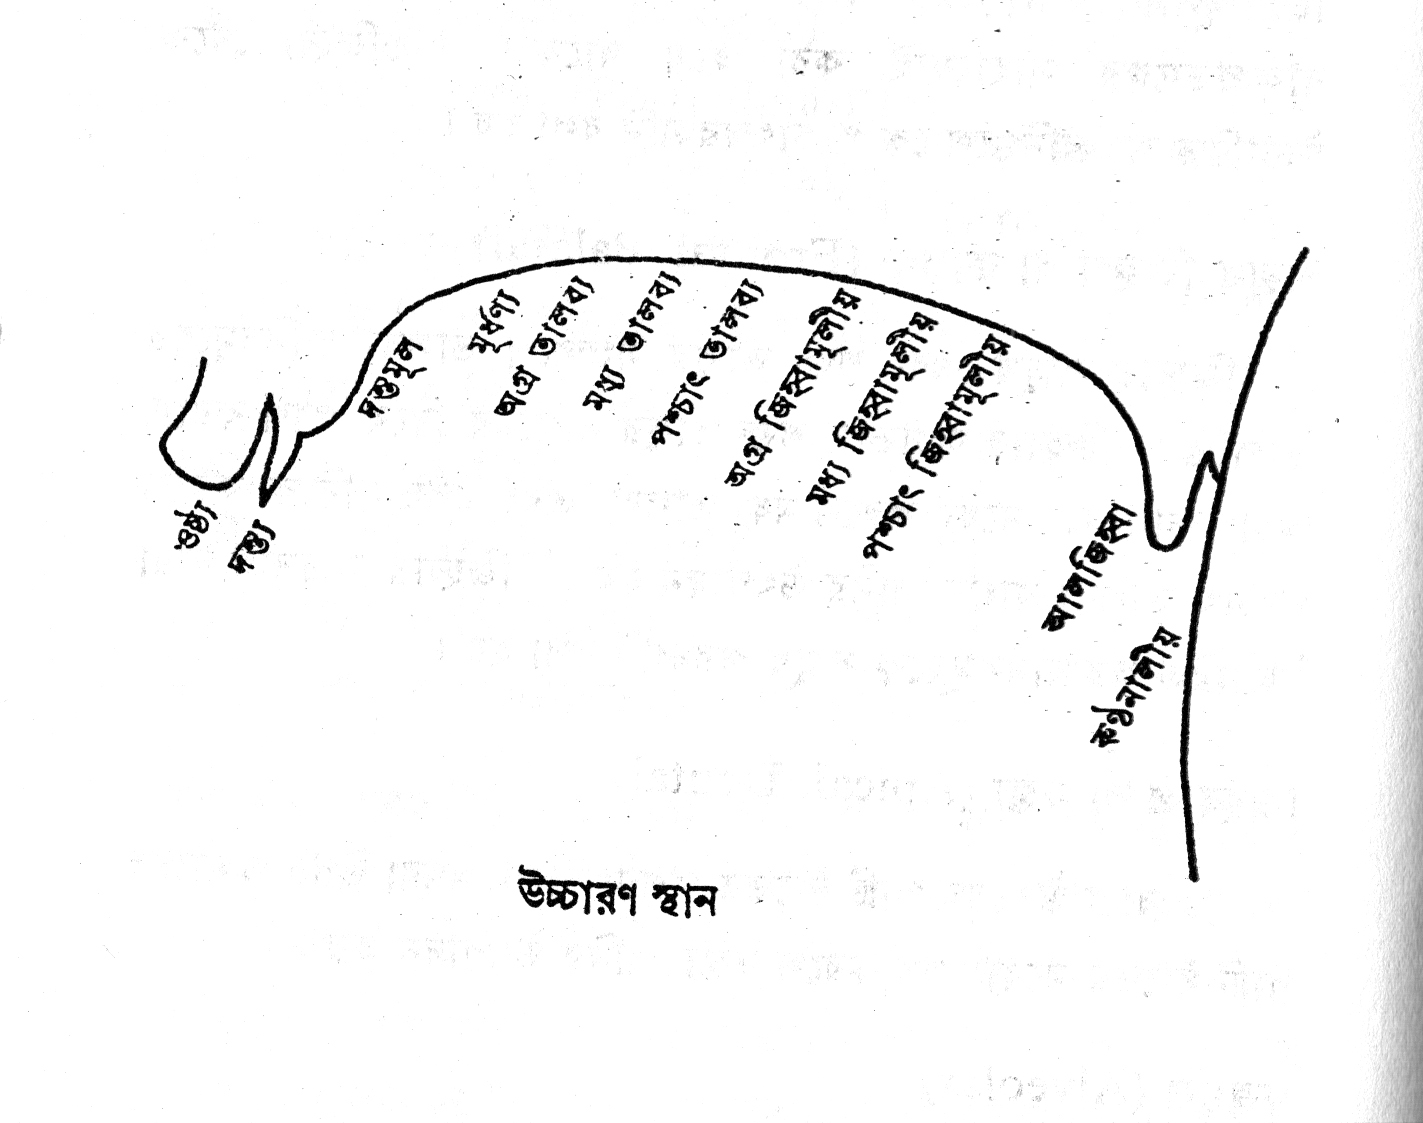 ওষ্ঠ্য
দন্ত্য
দন্তমূল
মূর্ধণ্য
অগ্র তালব্য
মধ্য তালব্য
পশ্চাৎ তালব্য
অগ্র জিহ্বামূলীয়
মধ্য জিহ্বামূলীয়
পশ্চাৎ জিহ্বামূলীয়
আলজিহ্বা
কণ্ঠনালীয়
উচ্চারণ স্থান